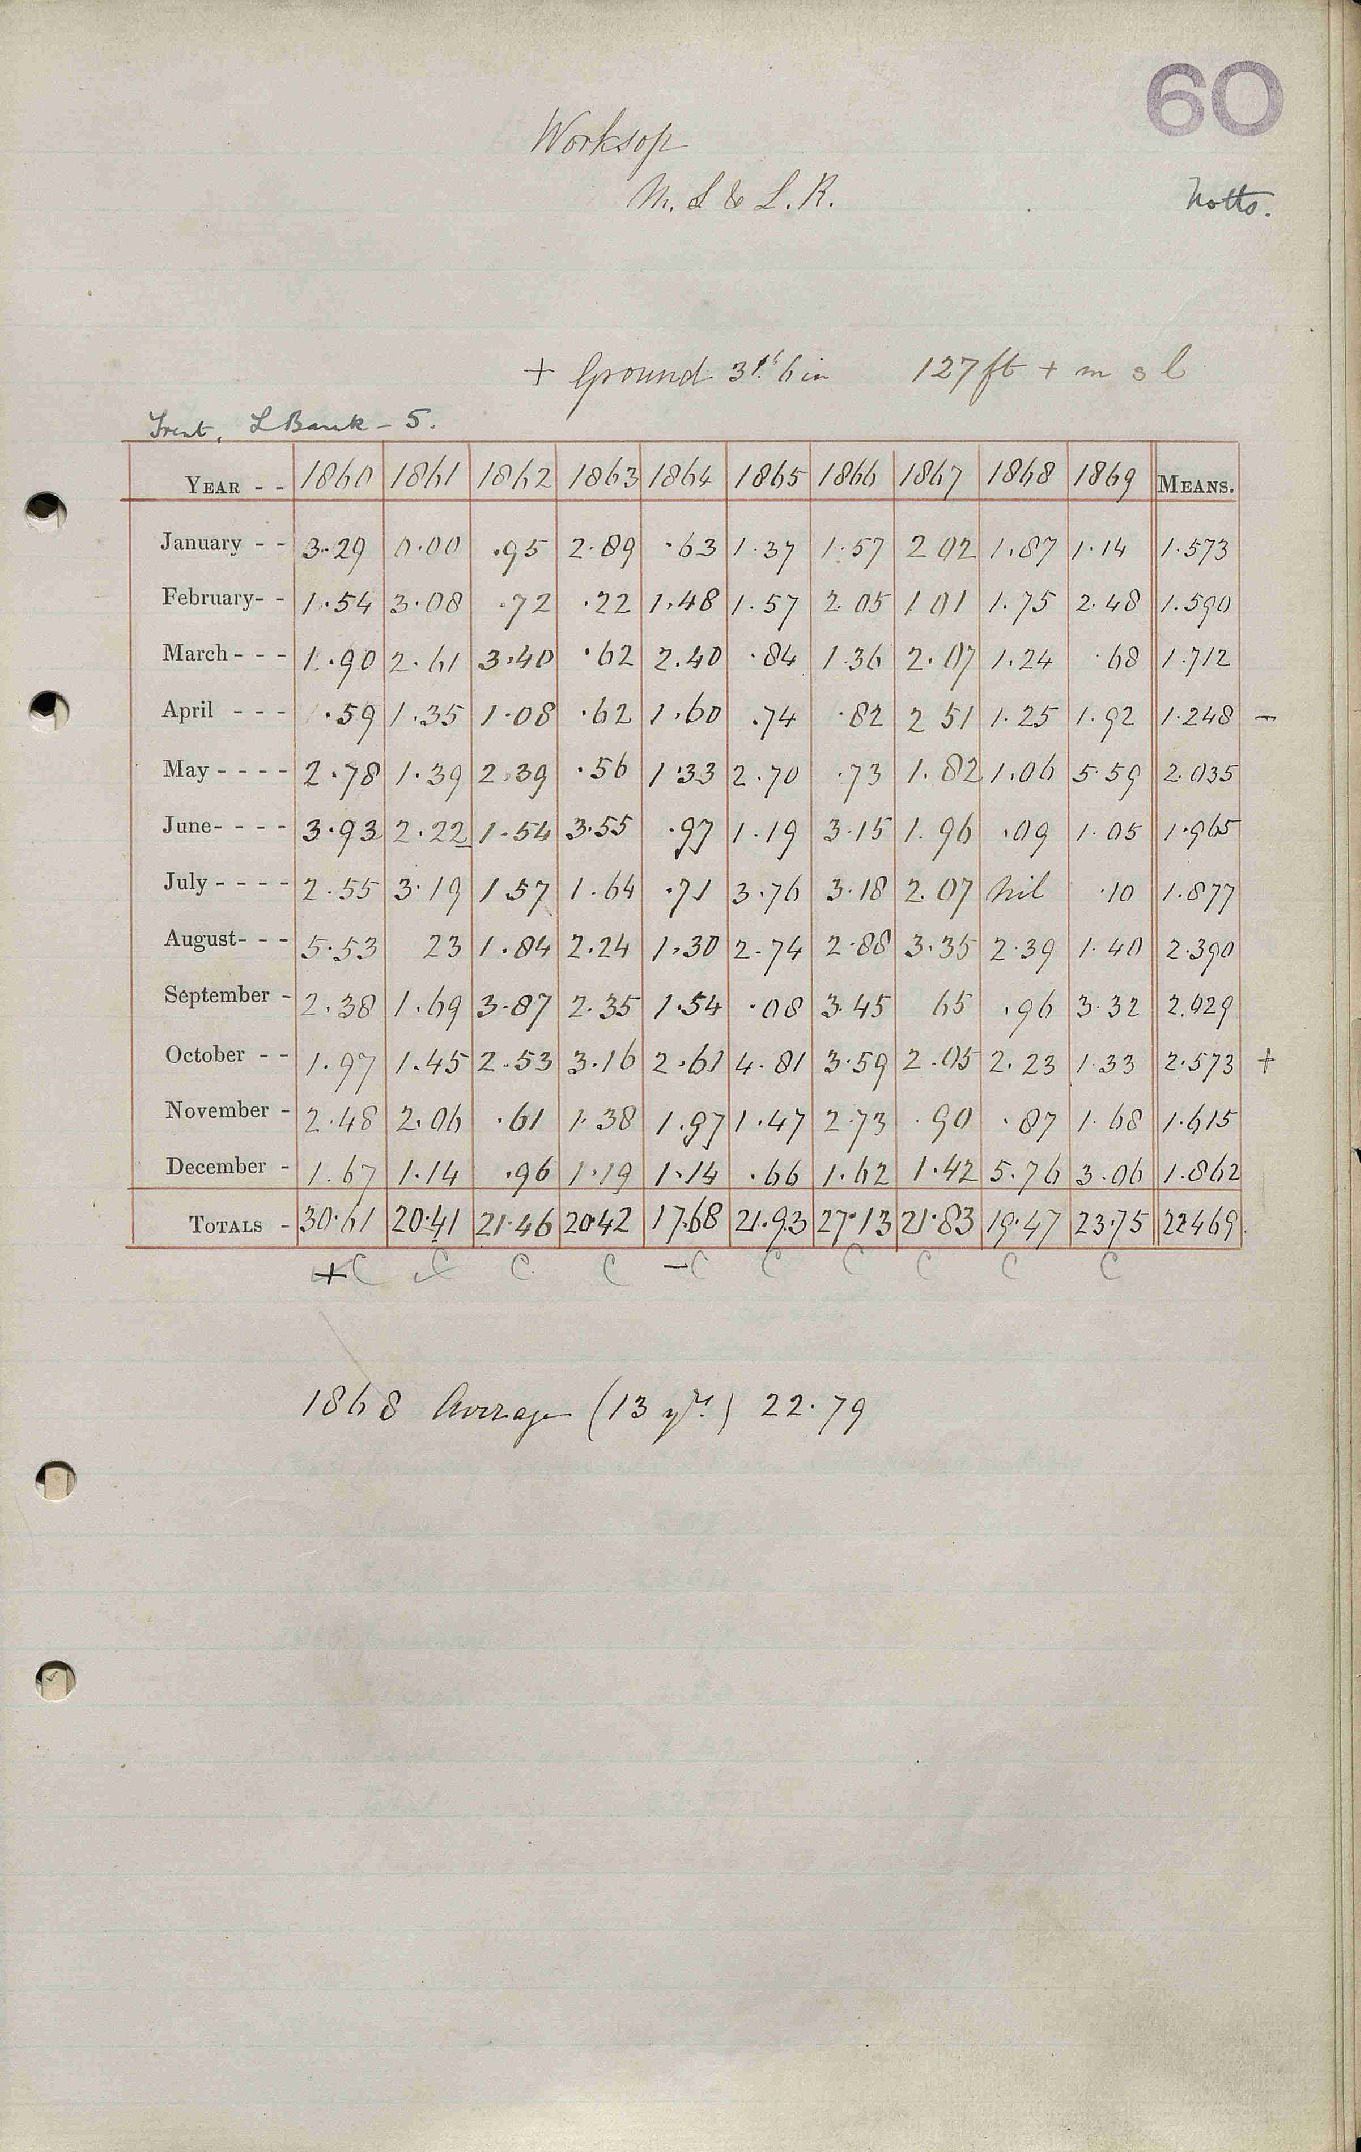 60
Worksop
M. S & L. R.
Notts.
+ Ground 3ft 6 in 127 ft + m s l
Trent, L Bank - 5.
YEAR - - 1860 1861 1862 1863 1864 1865 1866 1867 1868 1869 MEANS.
January - - 3.29 0.00 .95 2.89 .63 1.37 1.57 2 02 1.87 1.14 1.573
February- - 1.54 3.08 .72 .22 1.48 1.57 2.05 1 01 1.75 2.48 1.590
March - - - 1.90 2.61 3.40 .62 2.40 .84 1.36 2.07 1.24 .68 1.712
April - - - .59 1.35 1.08 .62 1.60 .74 .82 2 51 1.25 1.92 1.248 -
May - - - - 2.78 1.39 2.39 .56 1.33 2.70 .73 1.82 1.06 5.59 2.035
June- - - - 3.93 2.22 1.54 3.55 .97 1.19 3.15 1.96 .09 1.05 1.965
July - - - - 2.55 3.19 1.57 1.64 .71 3.76 3.18 2.07 Nil .10 1.877
August- - - 5.53 23 1.84 2.24 1.30 2.74 2.88 3.35 2.39 1.40 2.390
September - 2.38 1.69 3.87 2.35 1.54 .08 3.45 65 .96 3.32 2.029
October - - 1.97 1.45 2.53 3.16 2.61 4.81 3.59 2.05 2.23 1.33 2.573 +
November - 2.48 2.06 .61 1.38 1.97 1.47 2.73 .90 .87 1.68 1.615
December - 1.67 1.14 .96 1.19 1.14 .66 1.62 1.42 5.76 3.06 1.862
TOTALS - 30.61 20.41 21.46 20.42 17.68 21.93 27.13 21.83 19.47 23.75 22.469
+C C C C -C C C C C C
1868 Average (13 yrs.) 22.79